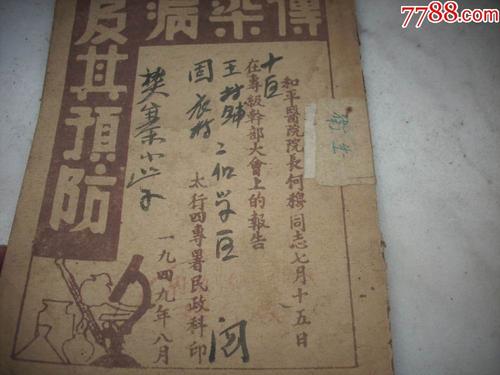 7788.com
傳染病
及其預防
和平醫院院長何穆同志七月十五日
在專級幹部大會上的報告
太行四專署民政科印
一九四九年八月
十区
王村鋪
二仙学区
固
小学
衛生